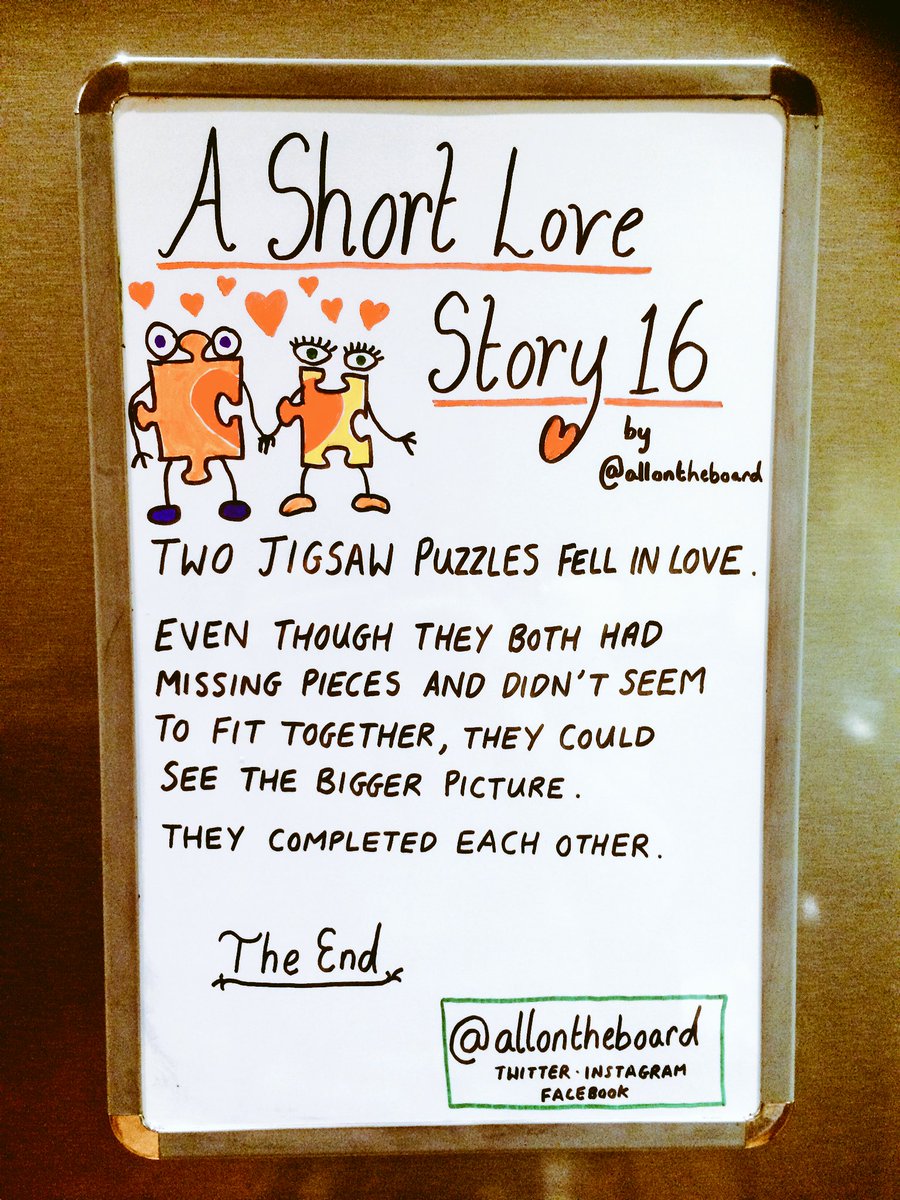 A Short Love
Story 16
by
@allontheboard
TWO JIGSAW PUZZLES FELL IN LOVE.
EVEN THOUGH THEY BOTH HAD
MISSING PIECES AND DIDN'T SEEM
TO FIT TOGETHER, THEY COULD
SEE THE BIGGER PICTURE.
THEY COMPLETED EACH OTHER.
The End
@allontheboard
TWITTER · INSTAGRAM
FACEBOOK